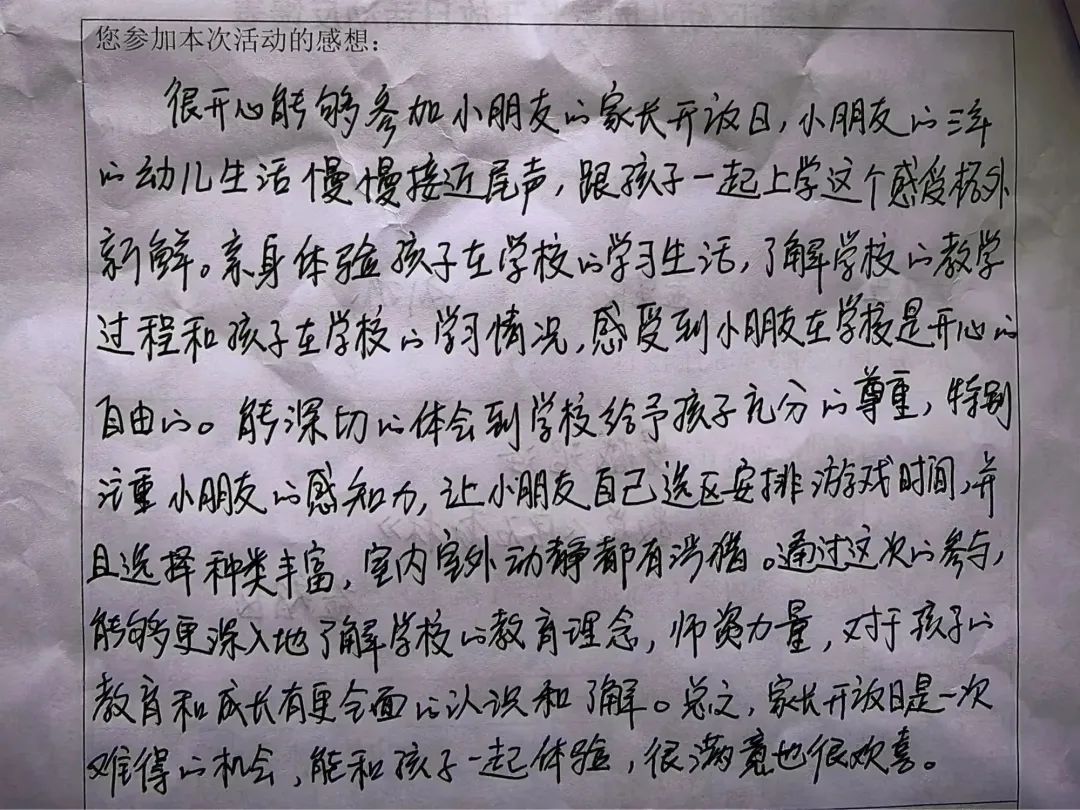 您参加本次活动的感想：
很开心能够参加小朋友的家长开放日，小朋友的三年
的幼儿生活慢慢接近尾声，跟孩子一起上学这个感受格外
新鲜。亲身体验孩子在学校的学习生活，了解学校的教学
过程和孩子在学校的学习情况，感受到小朋友在学校是开心的
自由的。能深切的体会到学校给予孩子充分的尊重，特别
注重小朋友的感知力，让小朋友自己选区安排游戏时间，并
且选择种类丰富，室内室外动静都有涉猎。通过这次的参与，
能够更深入地了解学校的教育理念，师资力量，对于孩子的
教育和成长有更全面的认识和了解。总之，家长开放日是一次
难得的机会，能和孩子一起体验，很满意也很欢喜。